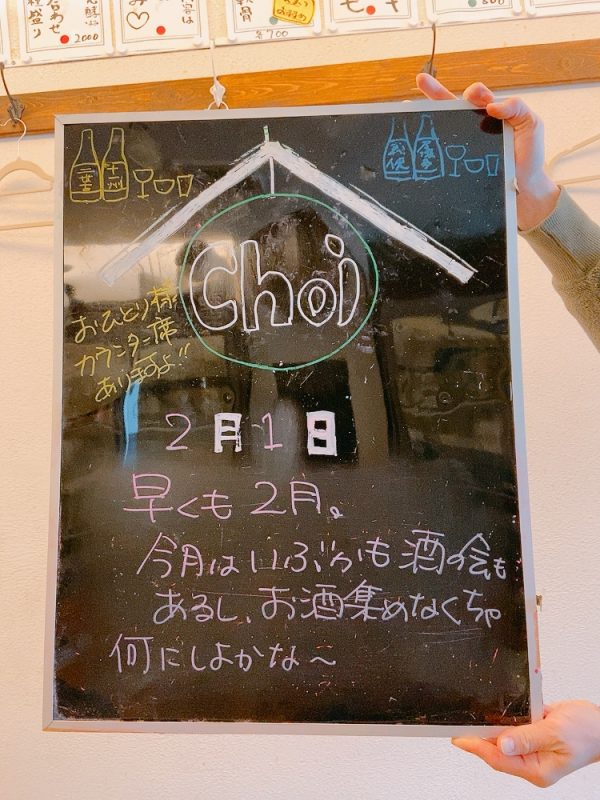 合わせ
盛り
2000
み♡
軟骨
各700
三芳
十州
Choi
おひとり様
カウンター席
ありますよ!!
2月1日
早くも2月。
今月はいぶかも酒の会も
あるし、お酒集めなくちゃ
何にしよかな〜